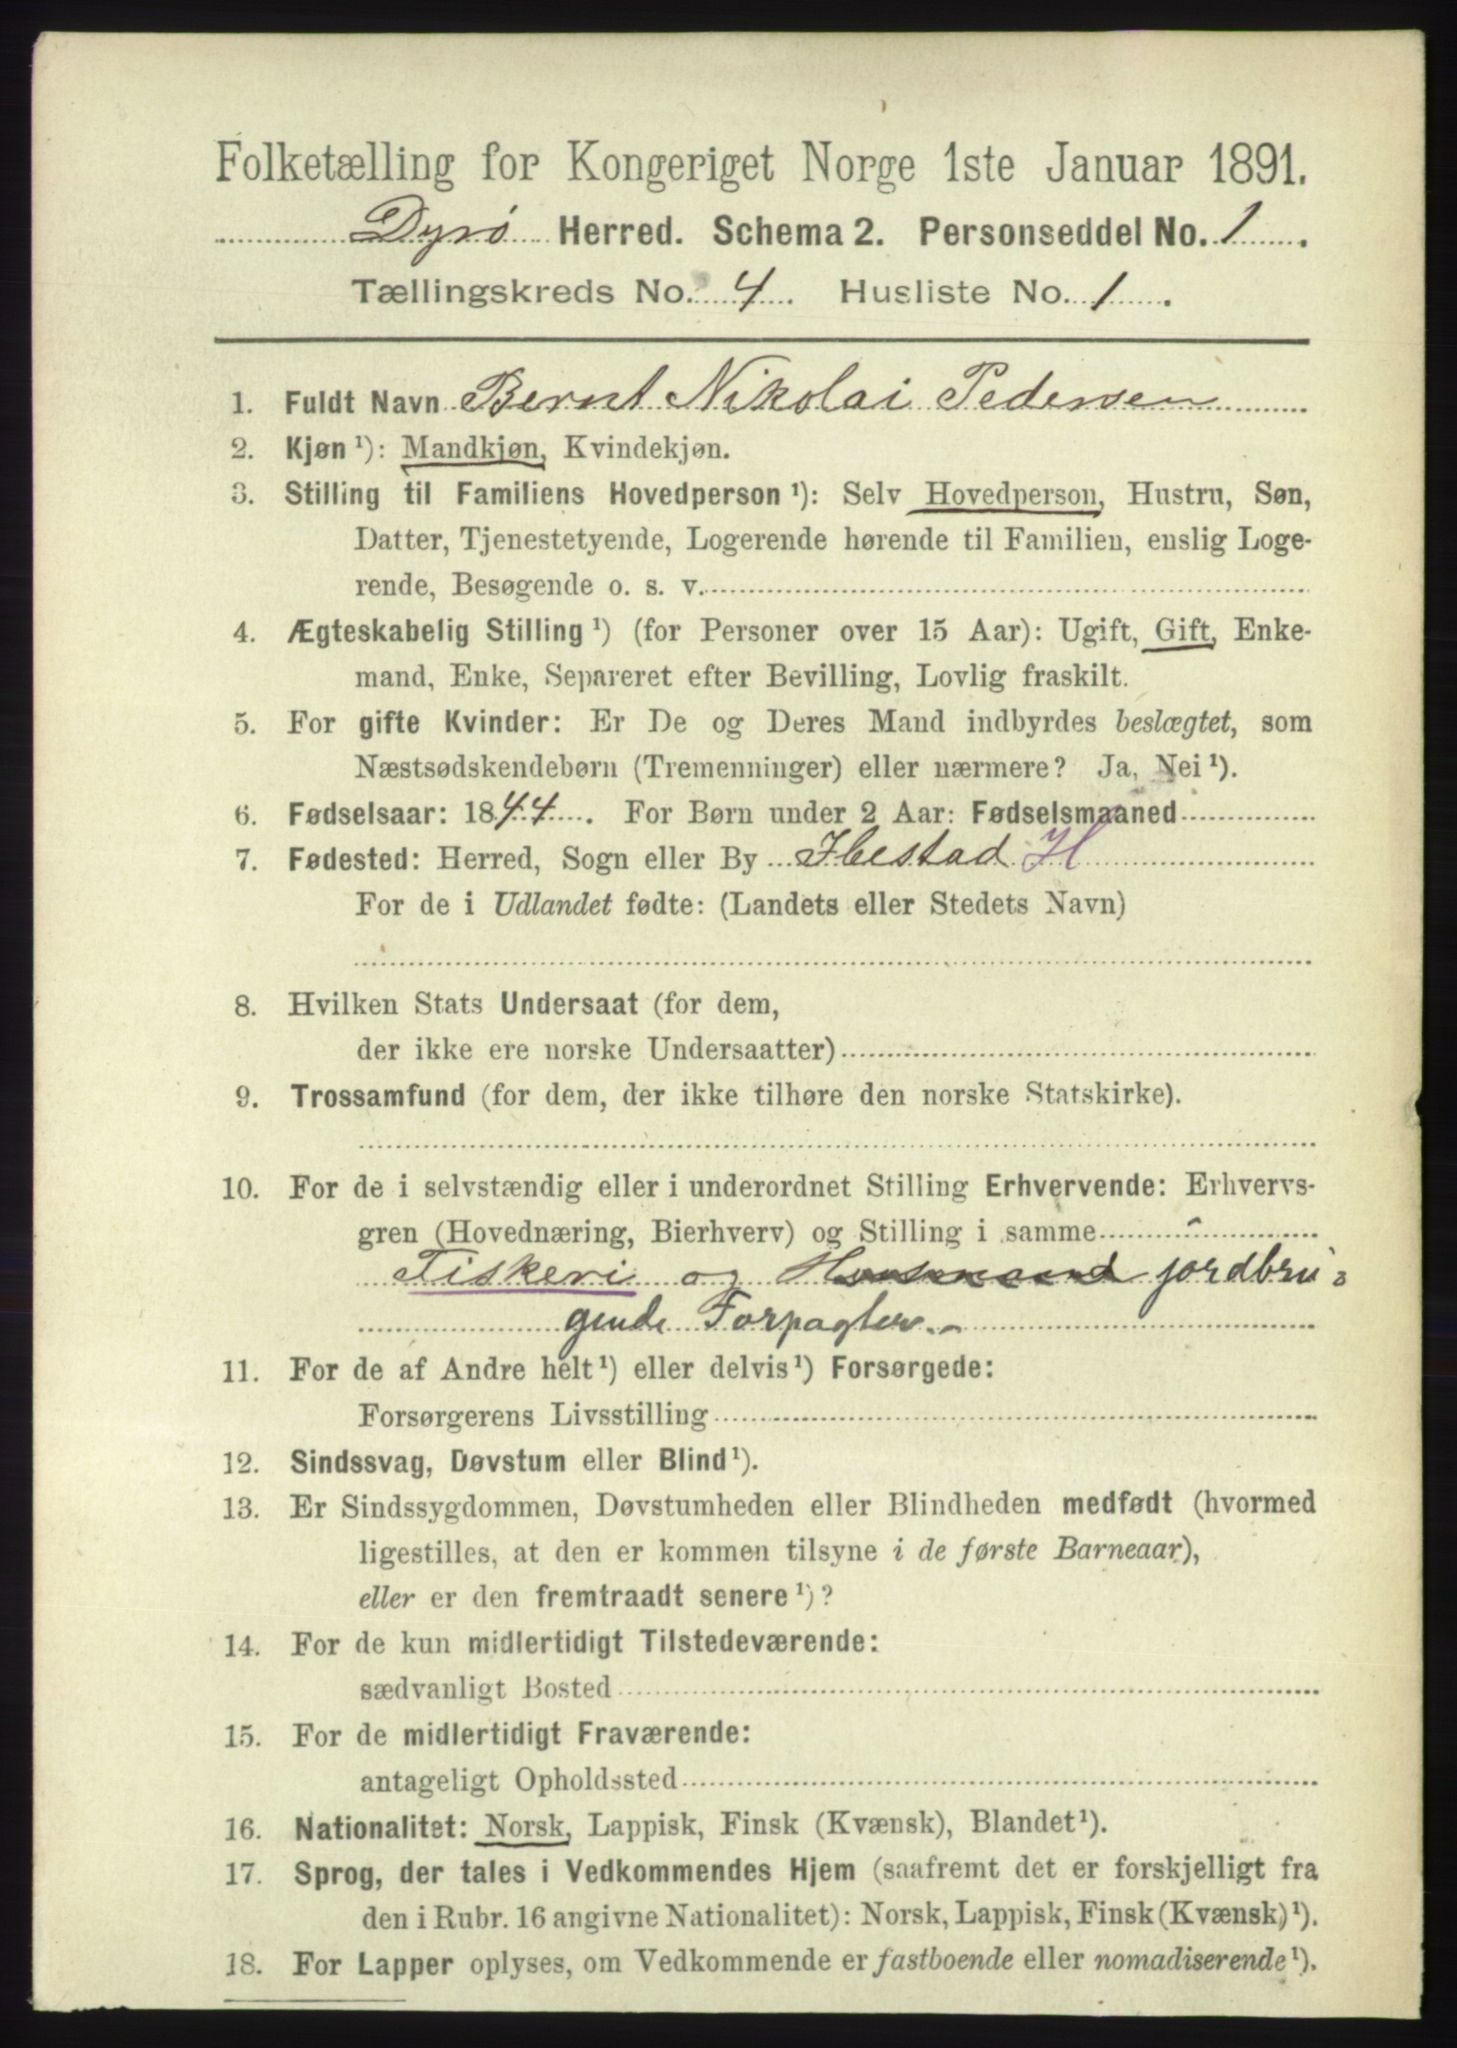 Folketælling for Kongeriget Norge 1ste Januar 1891.
Dyrø Herred. Schema 2. Personseddel No. 1.
Tællingskreds No. 4. Husliste No. 1.
1. Fuldt Navn Bernt Nikolai Pedersen
2. Kjøn ¹): Mandkjøn, Kvindekjøn.
3. Stilling til Familiens Hovedperson ¹): Selv Hovedperson, Hustru, Søn,
Datter, Tjenestetyende, Logerende hørende til Familien, enslig Loge-
rende, Besøgende o. s. v.
4. Ægteskabelig Stilling ¹) (for Personer over 15 Aar): Ugift, Gift, Enke-
mand, Enke, Separeret efter Bevilling, Lovlig fraskilt.
5. For gifte Kvinder: Er De og Deres Mand indbyrdes beslægtet, som
Næstsødskendebørn (Tremenninger) eller nærmere? Ja, Nei ¹).
6. Fødselsaar: 1844. For Børn under 2 Aar: Fødselsmaaned
7. Fødested: Herred, Sogn eller By Ibestad H
For de i Udlandet fødte: (Landets eller Stedets Navn)
8. Hvilken Stats Undersaat (for dem,
der ikke ere norske Undersaatter)
9. Trossamfund (for dem, der ikke tilhøre den norske Statskirke).
10. For de i selvstændig eller i underordnet Stilling Erhvervende: Erhvervs-
gren (Hovednæring, Bierhverv) og Stilling i samme
Fiskeri og Husmand jordbru-
gende Forpagter.-
11. For de af Andre helt ¹) eller delvis ¹) Forsørgede:
Forsørgerens Livsstilling
12. Sindssvag, Døvstum eller Blind ¹).
13. Er Sindssygdommen, Døvstumheden eller Blindheden medfødt (hvormed
ligestilles, at den er kommen tilsyne i de første Barneaar),
eller er den fremtraadt senere ¹)?
14. For de kun midlertidigt Tilstedeværende:
sædvanligt Bosted
15. For de midlertidigt Fraværende:
antageligt Opholdssted
16. Nationalitet: Norsk, Lappisk, Finsk (Kvænsk), Blandet ¹).
17. Sprog, der tales i Vedkommendes Hjem (saafremt det er forskjelligt fra
den i Rubr. 16 angivne Nationalitet): Norsk, Lappisk, Finsk (Kvænsk) ¹).
18. For Lapper oplyses, om Vedkommende er fastboende eller nomadiserende ¹).